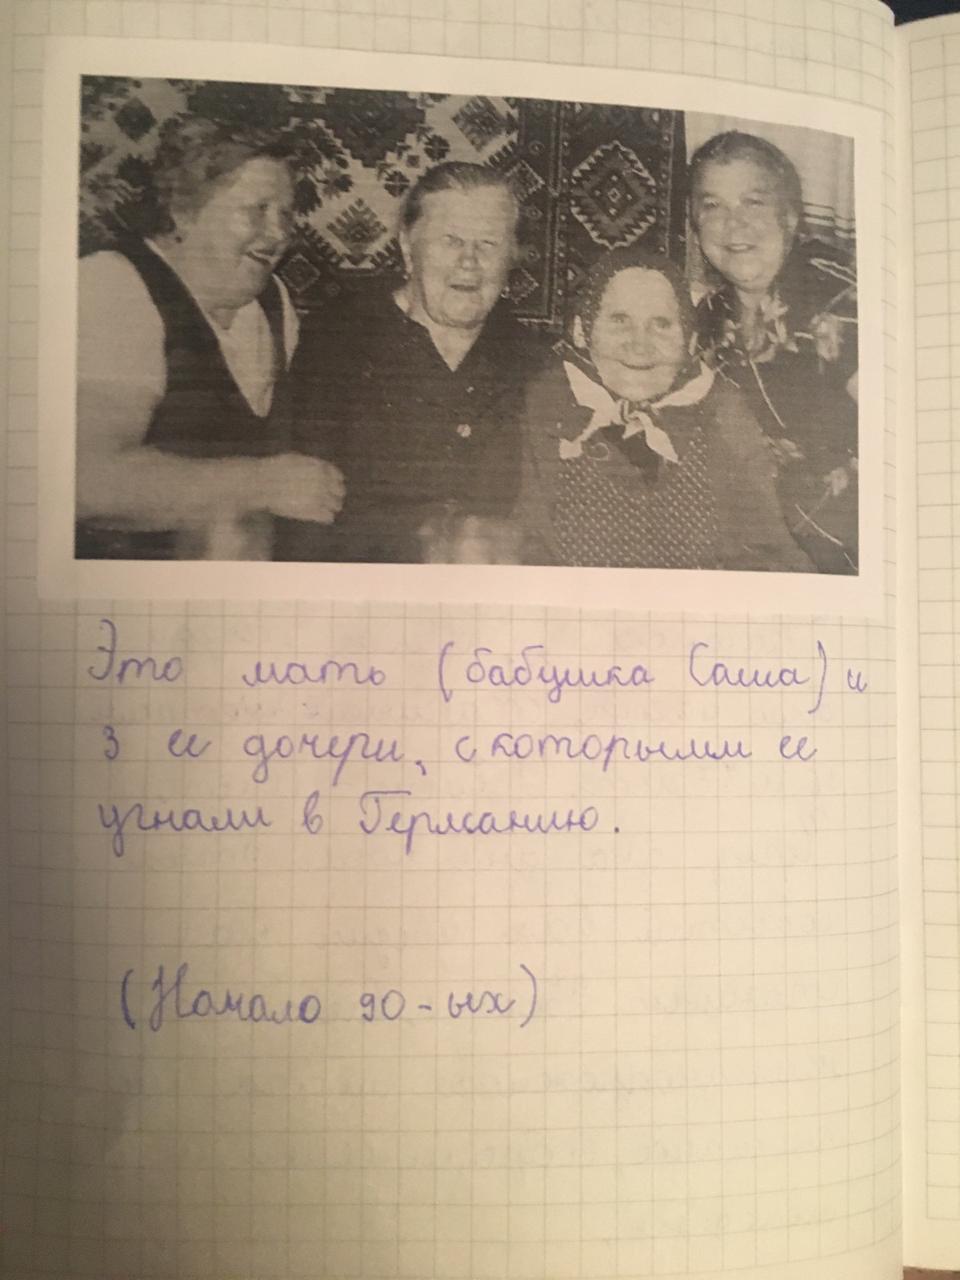 Это мать (бабушка Саша) и
3 ее дочери, с которыми ее
угнали в Германию.
(Начало 90-ых)